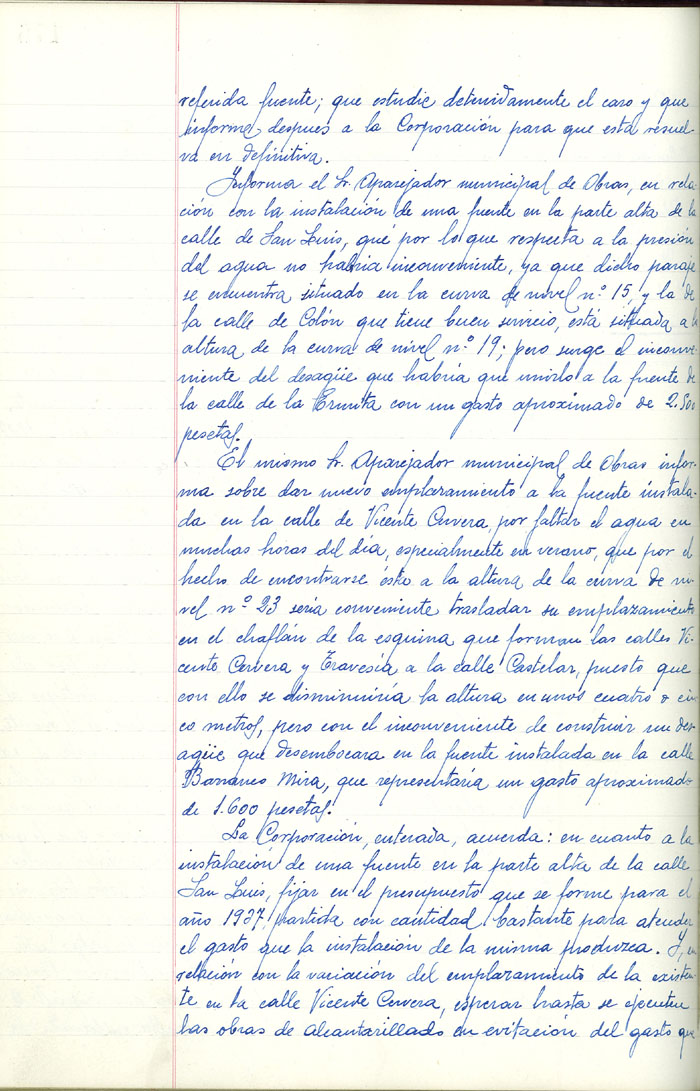 referida fuente; que estudie detenidamente el caso y que
informe despues a la Corporación para que esta resuel
va en definitiva.
Informa el Sr. Aparejador municipal de Obras, en rela
ción con la instalación de una fuente en la parte alta de la
calle de San Luis, que por lo que respecta a la presión
del agua no habría inconveniente, ya que dicho paraje
se encuentra situado en la curva de nivel nº 15, y la de
la calle de Colón que tiene buen servicio, está situada a la
altura de la curva de nivel nº 19; pero surge el inconve-
niente del desagüe que habría que unirlo a la fuente de
la calle de la Ermita con un gasto aproximado de
pesetas.
El mismo Sr. Aparejador municipal de Obras infor-
ma sobre dar nuevo emplazamiento a la fuente instala-
da en la calle de Vicente Cervera, por faltar el agua en
muchas horas del día, especialmente en verano, que por el
hecho de encontrarse ésta a la altura de la curva de ni-
vel nº 23 sería conveniente trasladar su emplazamiento
en el chaflán de la esquina que forman las calles Vi-
cente Cervera y Travesía a la calle Castelar, puesto que
con ello se disminuiría la altura en unos cuatro o cin
co metros, pero con el inconveniente de construir un des-
agüe que desembocara en la fuente instalada en la calle
Barranco Mira, que representaría un gasto aproximado
de 1.600 pesetas.
La Corporación, enterada, acuerda: en cuanto a la
instalación de una fuente en la parte alta de la calle
San Luis, fijar en el presupuesto que se forme para el
año 1937, partida con cantidad bastante para atender
el gasto que la instalación de la misma produzca. Y, en
relación con la variación del emplazamiento de la existen
te en la calle Vicente Cervera, esperar hasta se ejecuten
las obras de alcantarillado en evitación del gasto que